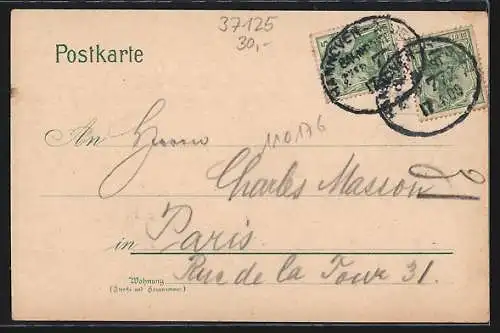 37125
30,-
Postkarte
HANNOVER
An Herrn
110176
Charles Masson
in Paris
Wohnung
(Straße und Hausnummer)
Rue de la Tour 31.